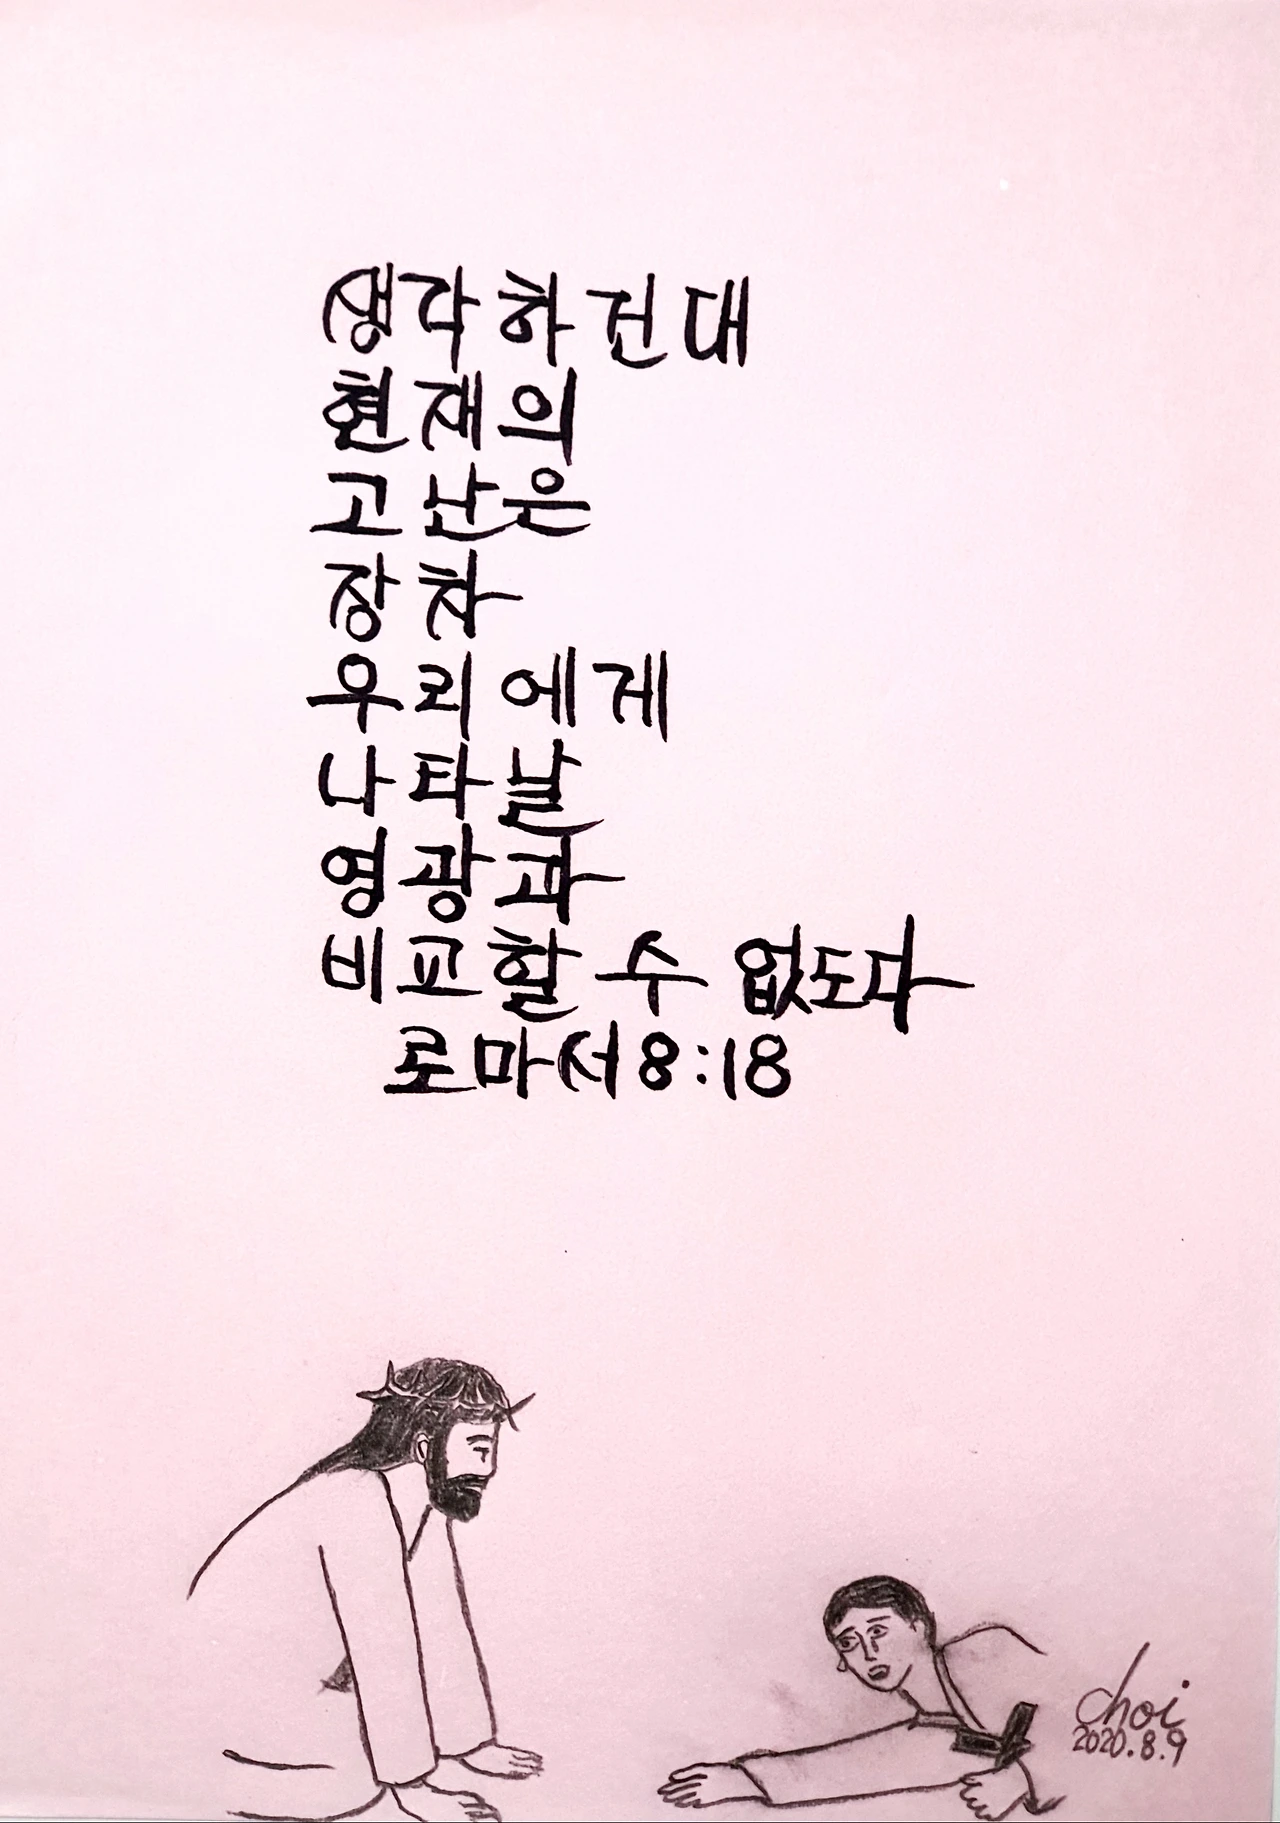 생각하건대
현재의
고난은
장차
우리에게
나타날
영광과
비교할 수 없도다
로마서 8:18
choi
2020.8.9